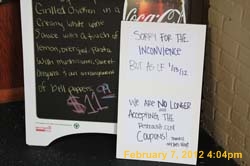 Grilled Chicken in a
Creamy white wine
Sauce with a touch of
lemon, over pasta
with mushrooms, sweet
an arrangement
of bell peppers
$11.09
Coca-Cola
SORRY FOR THE
INCONVIENCE
BUT AS OF 1/13/12
WE ARE NO LONGER
ACCEPTING THE
Coupons!
February 7, 2012 4:04pm